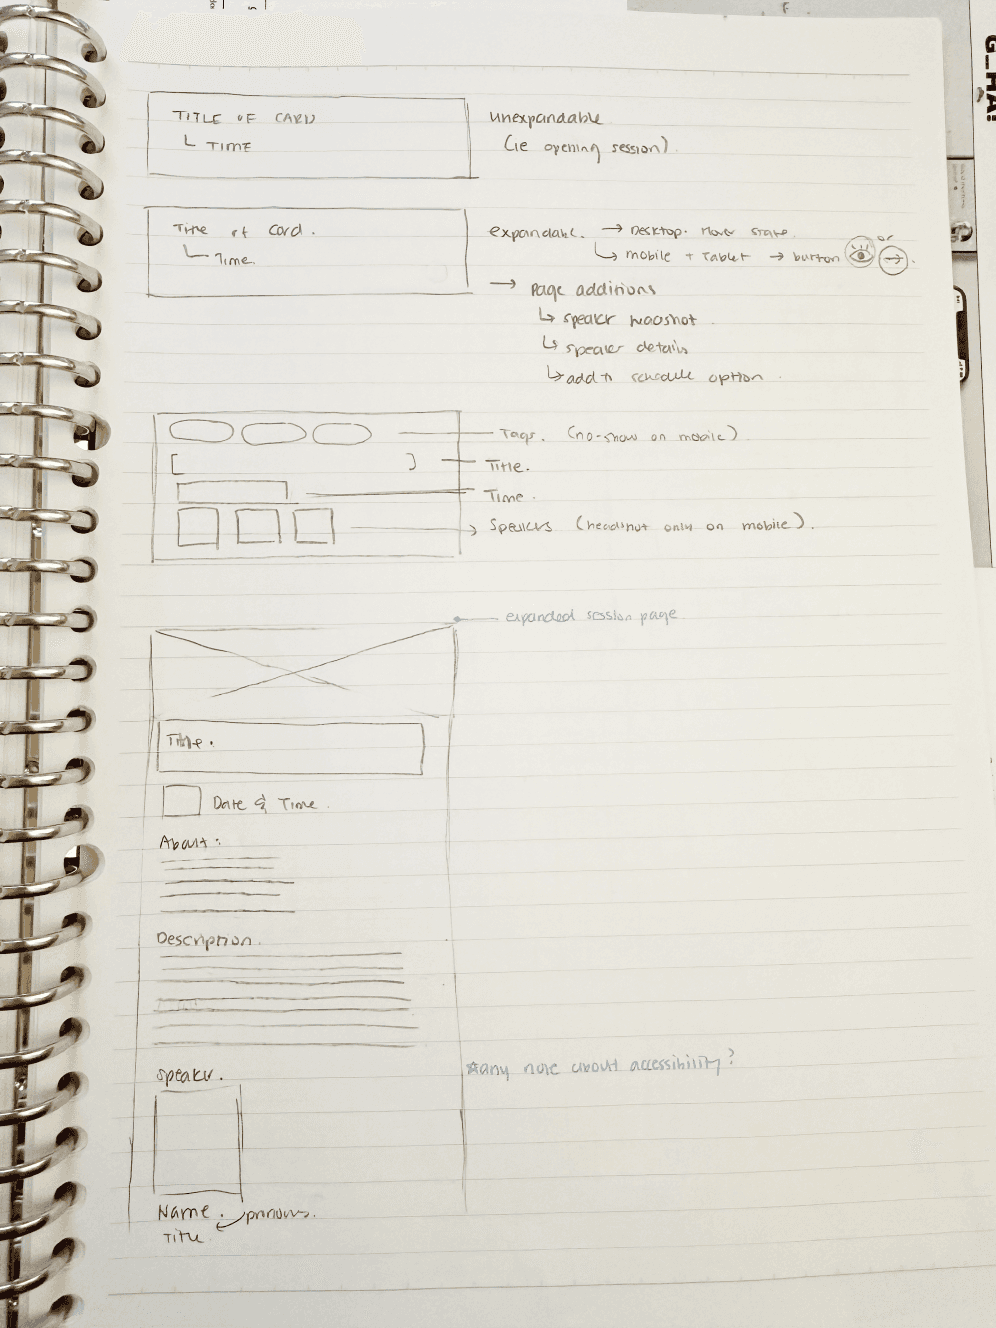 TITLE OF CARD
TIME
unexpandable
(ie opening session)
Title of Card.
Time.
expandable. → Desktop. Hover state.
mobile + Tablet → button or
→ Page additions
speaker headshot
speaker details
add to schedule option
Tags. (no-show on mobile)
Title.
Time.
Speakers (headshot only on mobile).
expanded session page
Title.
Date & Time.
About:
Description.
*any note about accessibility?
Speaker.
Name. pronouns.
Title.
G_HA!